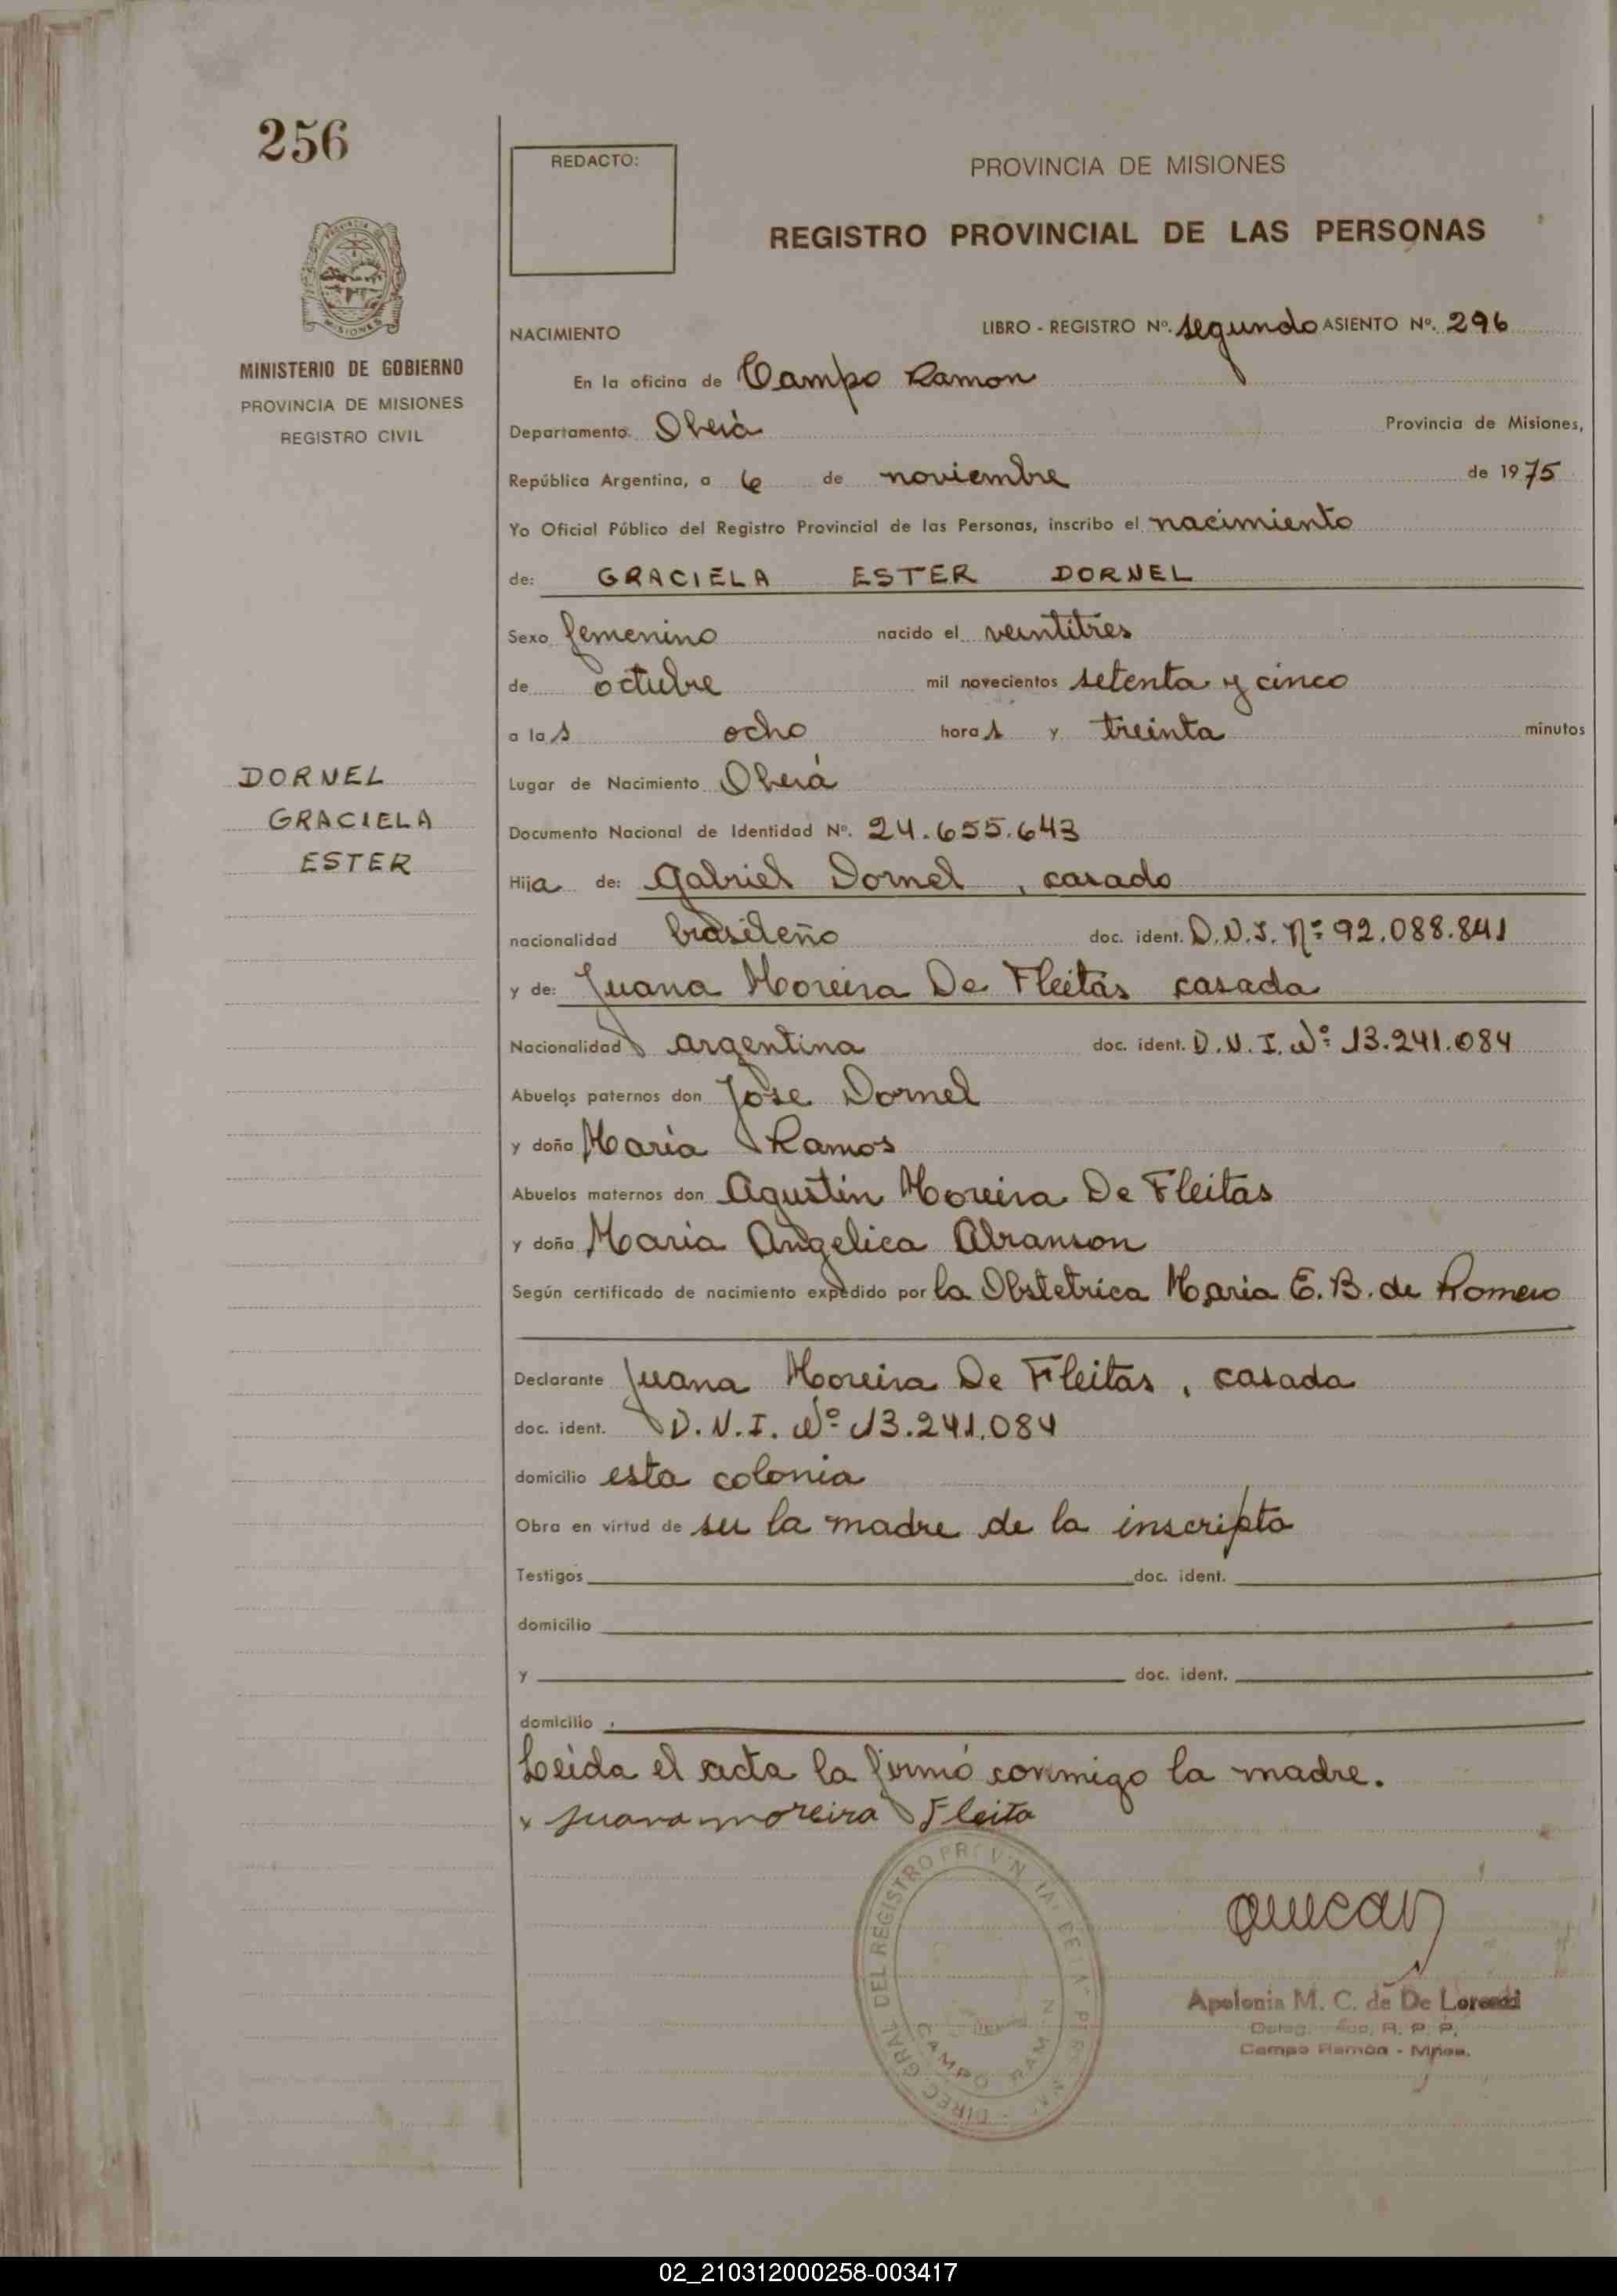 256
REDACTO:
PROVINCIA DE MISIONES
REGISTRO PROVINCIAL DE LAS PERSONAS
MISIONES
MINISTERIO DE GOBIERNO
PROVINCIA DE MISIONES
REGISTRO CIVIL
NACIMIENTO
LIBRO - REGISTRO Nº. segundo ASIENTO Nº. 296
En la oficina de Campo Ramon
Departamento. Oberá Provincia de Misiones,
República Argentina, a 6 de noviembre de 1975
Yo Oficial Público del Registro Provincial de las Personas, inscribo el nacimiento
de: GRACIELA ESTER DORNEL
Sexo femenino nacido el veintitres
de octubre mil novecientos setenta y cinco
a las ocho horas y treinta minutos
DORNEL
GRACIELA
ESTER
Lugar de Nacimiento Oberá
Documento Nacional de Identidad Nº. 24.655.643
Hija de: Gabriel Dornel, casado
nacionalidad brasileño doc. ident. D.N.I. Nº 92.088.841
y de: Juana Moreira De Fleitas casada
Nacionalidad argentina doc. ident. D.N.I. Nº 13.241.084
Abuelos paternos don Jose Dornel
y doña Maria Ramos
Abuelos maternos don Agustin Moreira De Fleitas
y doña Maria Angelica Abranson
Según certificado de nacimiento expedido por la Obstetrica Maria E. B. de Romero
Declarante Juana Moreira De Fleitas, casada
doc. ident. D.N.I. Nº 13.241.084
domicilio esta colonia
Obra en virtud de su la madre de la inscripta
Testigos doc. ident.
domicilio
y doc. ident.
domicilio
Leída el acta la firmó conmigo la madre.
x Juana moreira Fleita
DIREC. GRAL DEL REGISTRO
CAMPO RAMON
Apolonia M. C. de De Lorenzi
R. P. P.
Campo Ramón - Mnes.
02_210312000258-003417